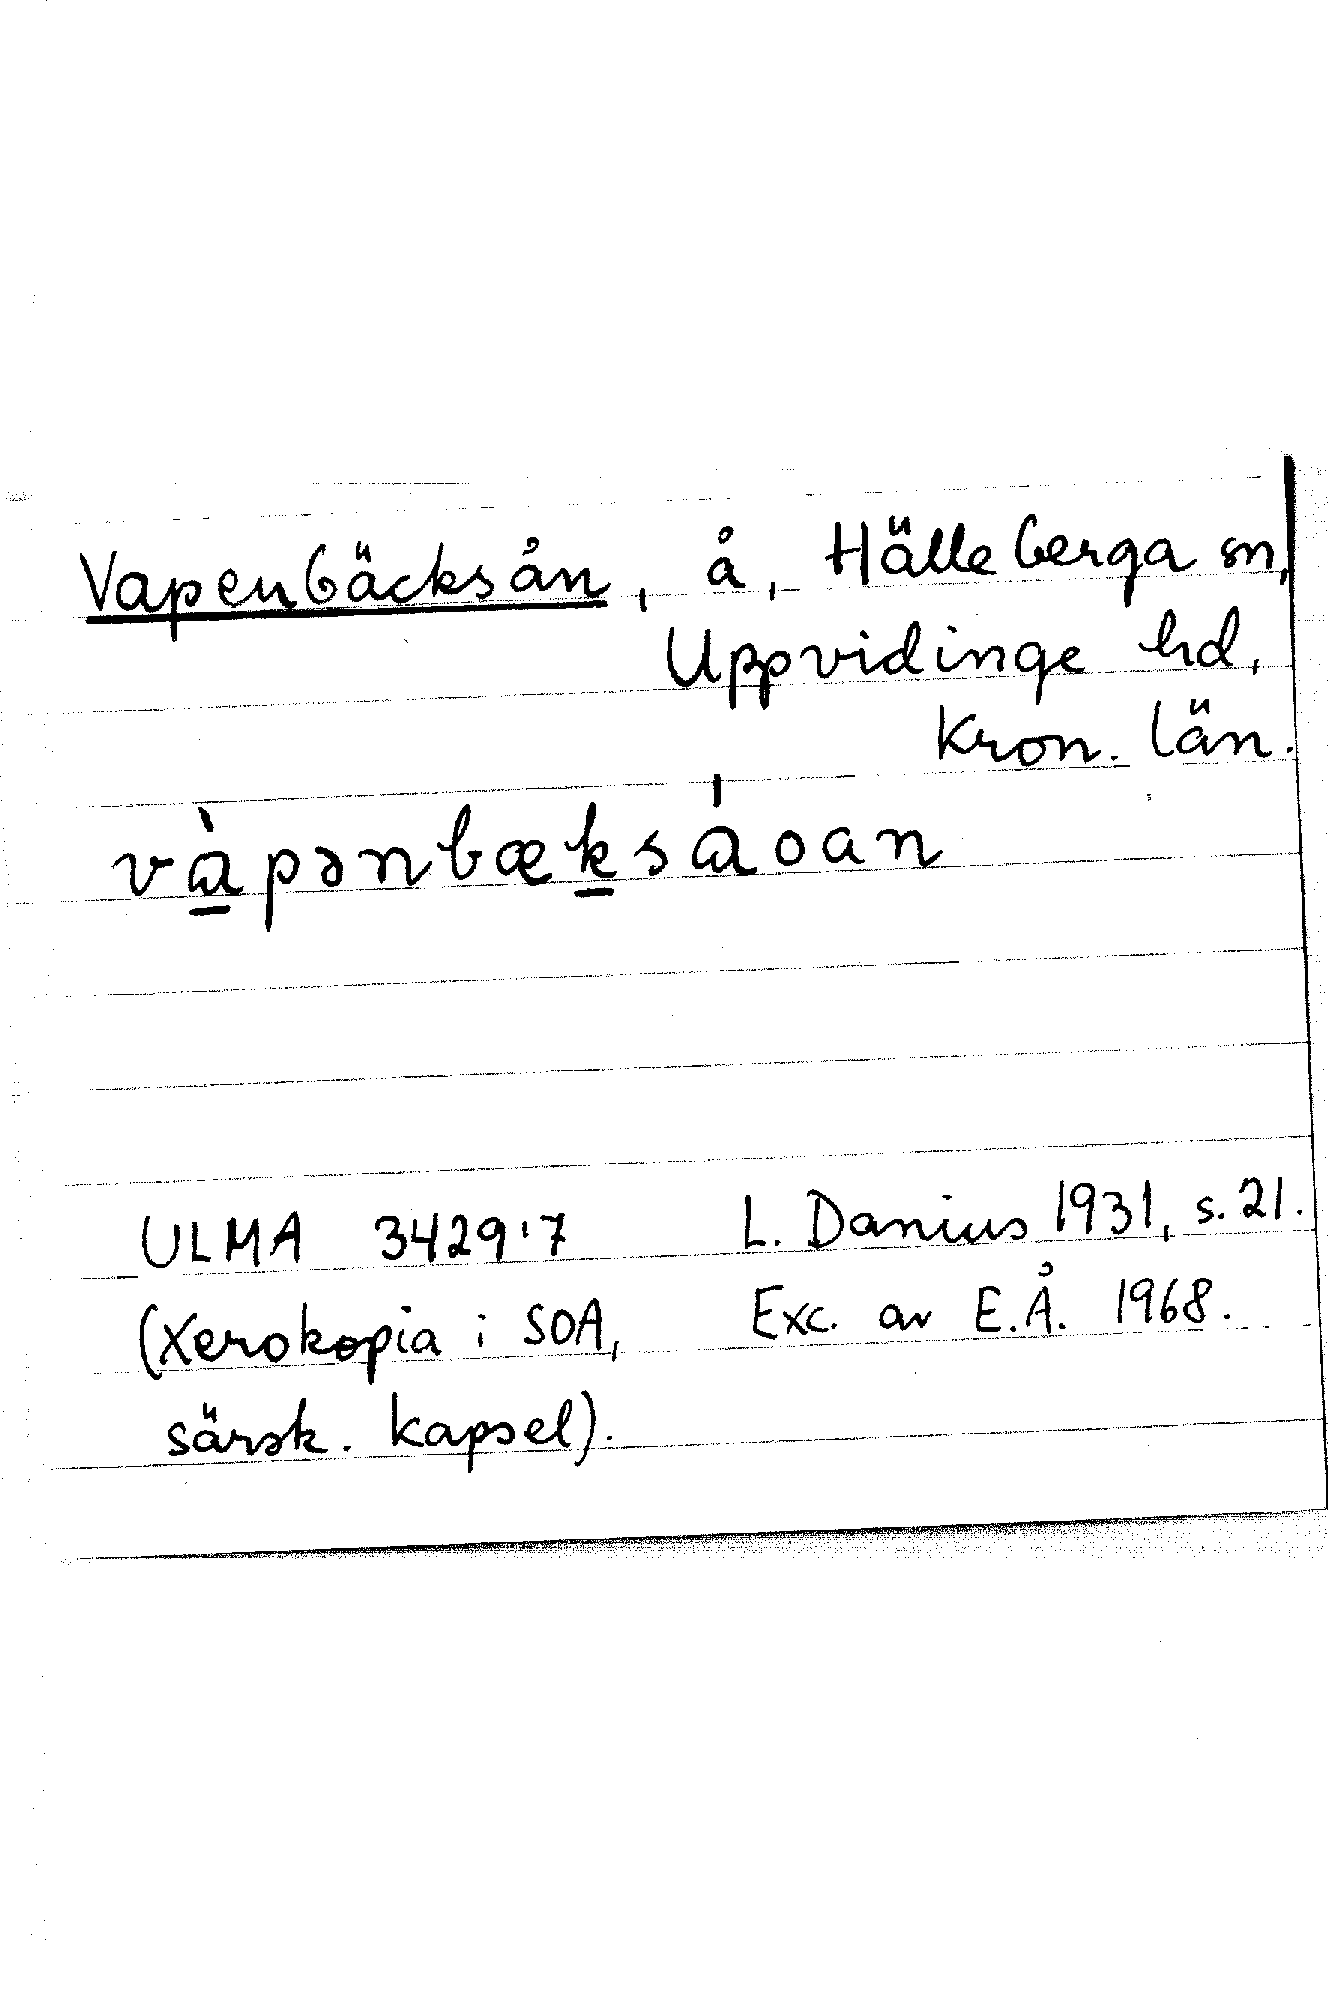 Vapenbäcksån, å, Hälleberga sn,
Uppvidinge hd,
Kron. län.
và̱pənbæḵsáoan
ULMA 3429:7 L. Danius 1931, s. 21.
(Xerokopia i SOA, Exc. av E.Å. 1968.
särsk. kapsel).